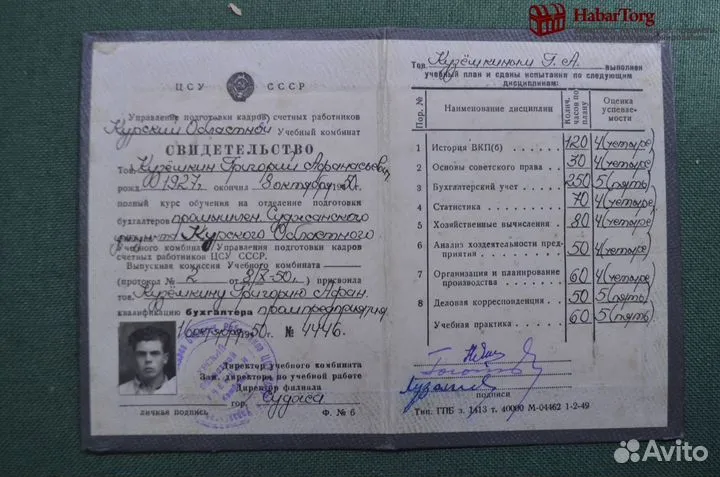 HabarTorg
ЦСУ СССР
Управление подготовки кадров счетных работников
Курский Областной Учебный комбинат
СВИДЕТЕЛЬСТВО
Тов. Курёмкин Григорий Афанасьевич
рожд. в 1927г. окончил 8 октября 1950г.
полный курс обучения на отделение подготовки
бухгалтеров промышлен. Суджанского
Курского Областного
Учебного комбината Управления подготовки кадров
счетных работников ЦСУ СССР.
Выпускная комиссия Учебного комбината
(протокол № 2 от 8/X-50г.) присвоила
тов. Курёмкину Григорию Афан.
квалификацию бухгалтера промпредприятия
октября 1950г. № 4446.
Директор учебного комбината
Зам. директора по учебной работе
Директор филиала
гор. Суджа
личная подпись Ф. № 6
Тов. Курёмкиным Г. А. выполнен
учебный план и сданы испытания по следующим
дисциплинам:
Пор. № Наименование дисциплин Колич. часов по плану Оценка успеваемости
1 История ВКП(б) 120 4 (четыре)
2 Основы советского права 30 4 (четыре)
3 Бухгалтерский учет 250 5 (пять)
4 Статистика 70 4 (четыре)
5 Хозяйственные вычисления 80 4 (четыре)
6 Анализ хоздеятельности предприятия 50 4 (четыре)
7 Организация и планирование производства 60 4 (четыре)
8 Деловая корреспонденция 50 5 (пять)
Учебная практика 60 5 (пять)
подписи
Тип. ГПБ з. 1413 т. 40000 М-04462 1-2-49
Avito